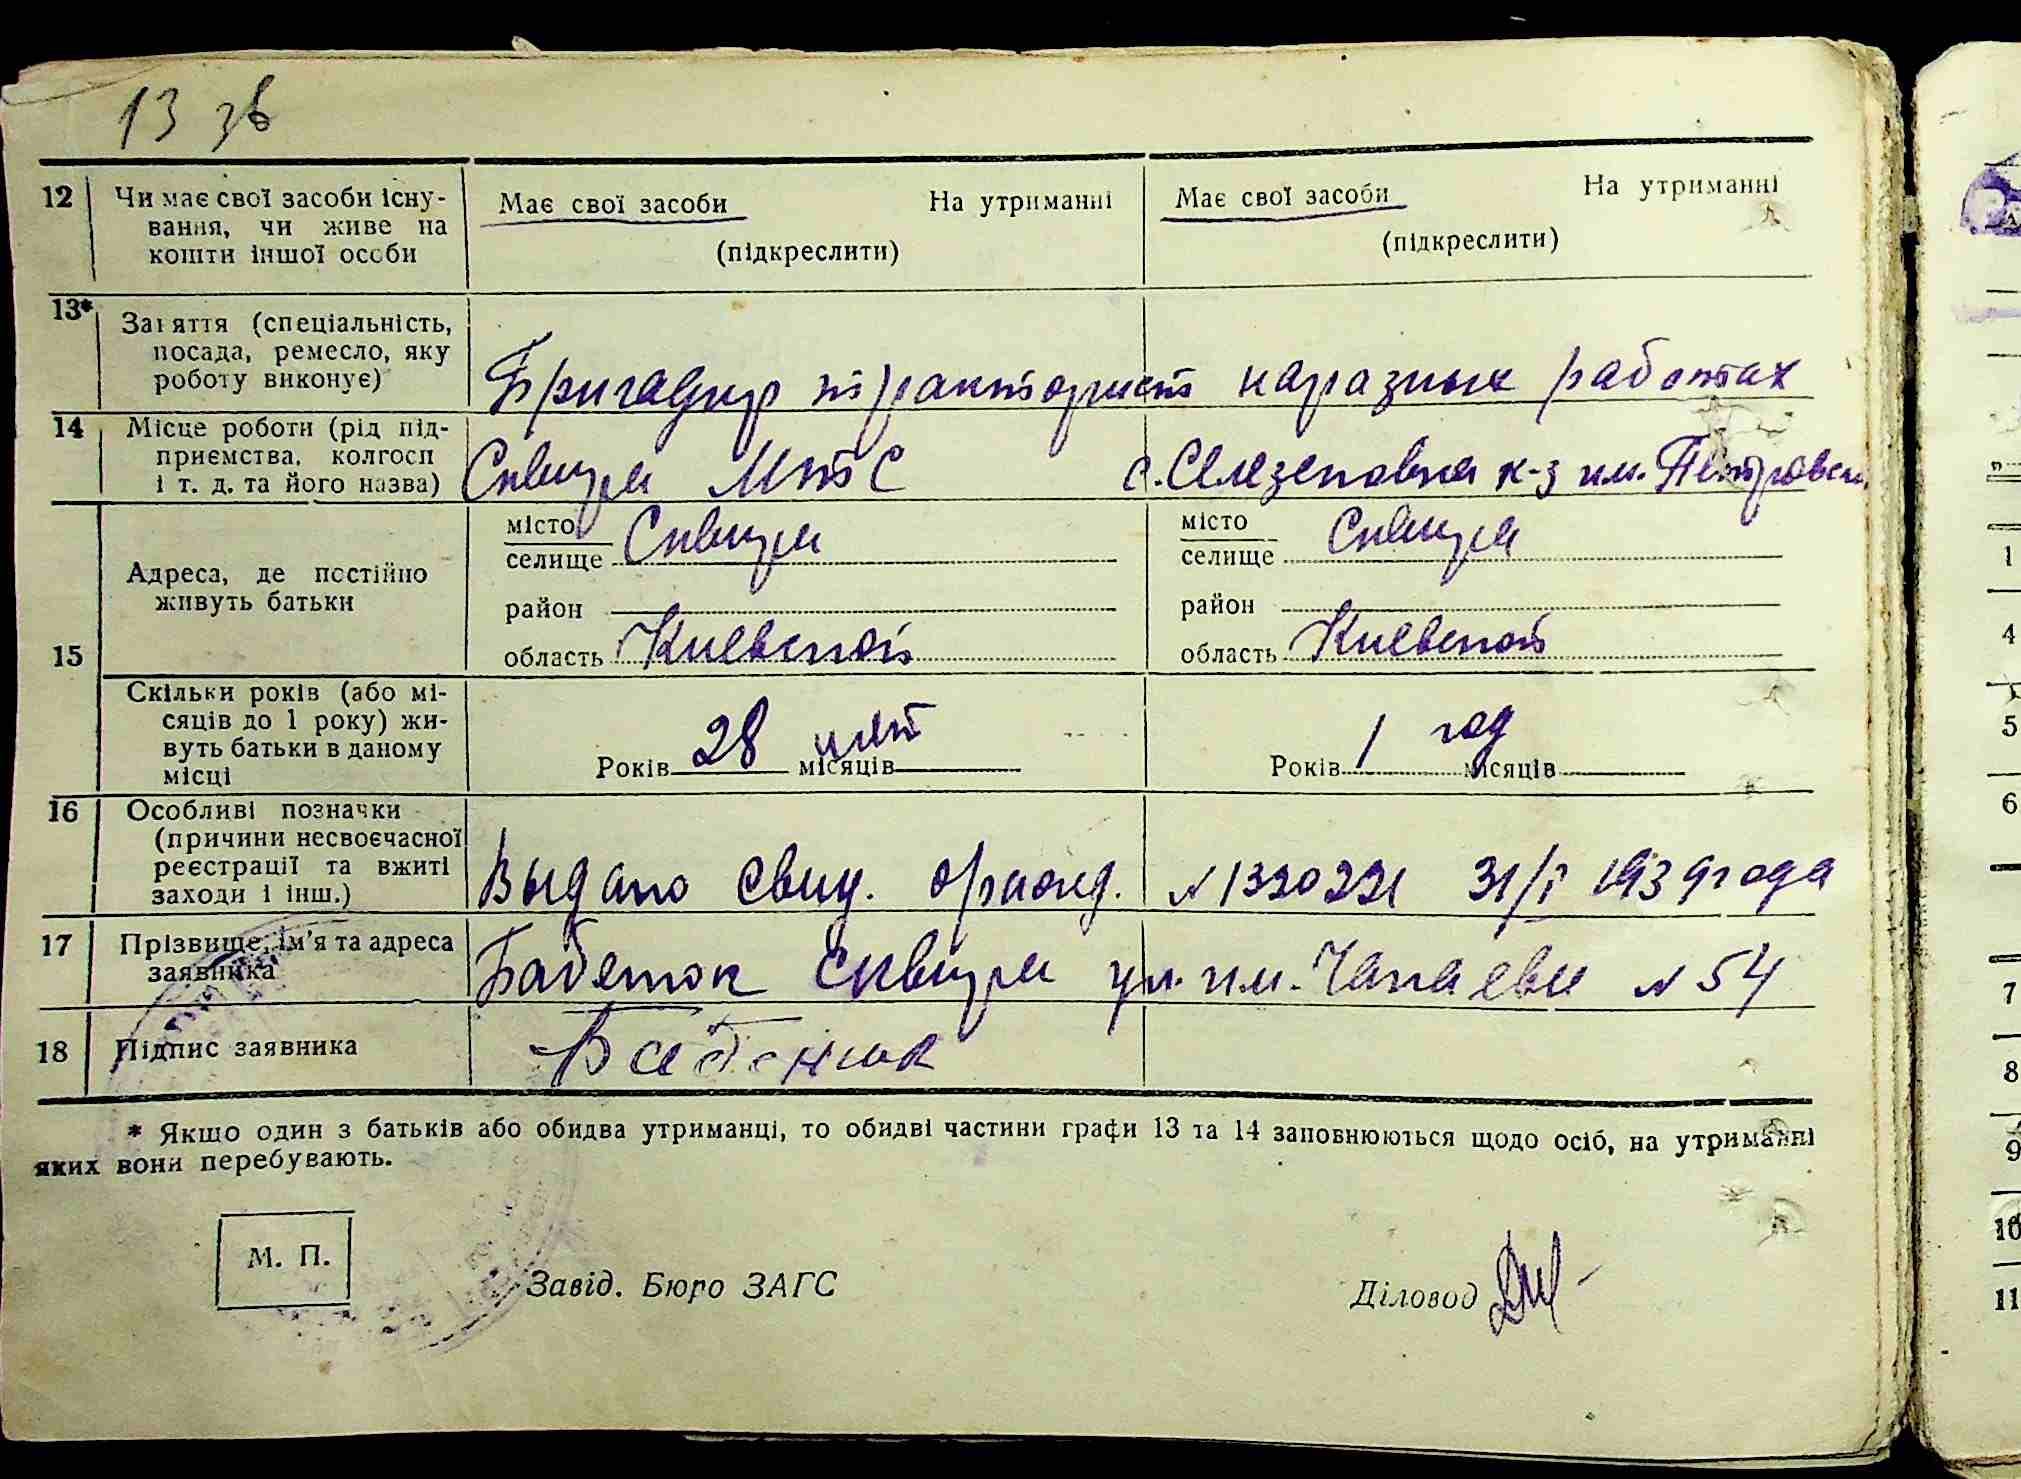 13 зв
12 Чи має свої засоби існу- Має свої засоби На утриманні Має свої засоби На утриманні
вання, чи живе на
кошти іншої особи (підкреслити) (підкреслити)
13* Заняття (спеціальність,
посада, ремесло, яку
роботу виконує) Бригадир тракторист на разных работах
14 Місце роботи (рід під-
приємства, колгосп
і т. д. та його назва) Сквира МТС с. Селезеновка к-з им. Петровск.
15 Адреса, де постійно
живуть батьки
місто Сквира місто Сквира
селище селище
район район
область Киевской область Киевской
Скільки років (або мі-
сяців до 1 року) жи-
вуть батьки в даному
місці
Років 28 лет місяців Років 1 год місяців
16 Особливі позначки
(причини несвоєчасної
реєстрації та вжиті
заходи і інш.) Выдано свид. о рожд. № 1320221 31/I 1939 года
17 Прізвище, ім'я та адреса
заявника Сквира ул. им. Чапаева № 54
18 Підпис заявника
* Якщо один з батьків або обидва утриманці, то обидві частини графи 13 та 14 заповнюються щодо осіб, на утриманні
яких вони перебувають.
М. П.
Завід. Бюро ЗАГС Діловод
1
4
5
6
7
8
9
10
11